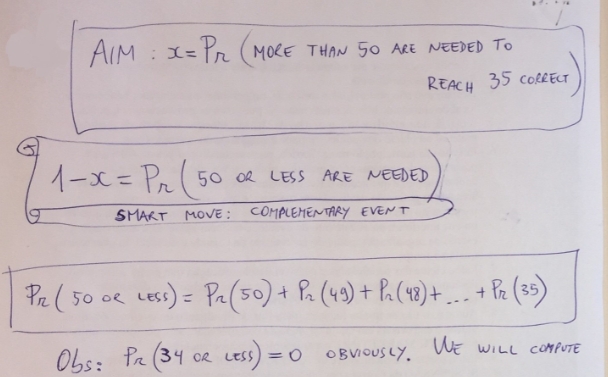 AIM : x = Pr (MORE THAN 50 ARE NEEDED TO
REACH 35 CORRECT)
1-x = Pr (50 OR LESS ARE NEEDED)
SMART MOVE: COMPLEMENTARY EVENT
Pr (50 OR LESS) = Pr(50) + Pr(49) + Pr(48) + ... + Pr(35)
Obs: Pr(34 OR LESS) = 0 OBVIOUSLY. WE WILL COMPUTE